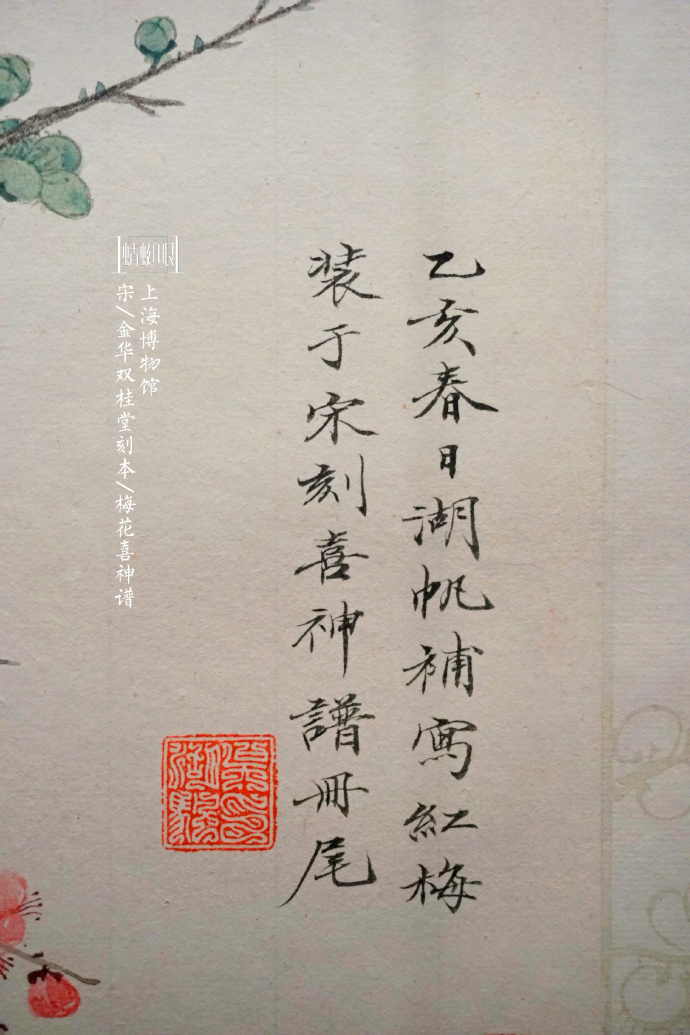 乙亥春日湖帆補寫紅梅
装于宋刻喜神譜冊尾
蜻蜓眼
上海博物馆
宋/金华双桂堂刻本/梅花喜神谱